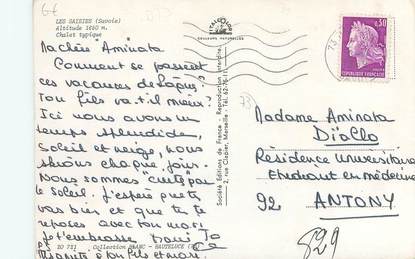 LES SAISIES (Savoie)
Altitude 1650 m.
Chalet typique
Ma chère Aminata
Comment se passent
ces vacances de Pâques?
Ton fils va t-il mieux?
Ici nous avons un
temps splendide,
soleil et neige, nous
skions chaque jour.
Nous sommes "cuits" par
le soleil. J'espère que tu
vas bien et que tu te
reposes avec ton mari
Je t'embrasse
à ton fils et mari
Collection BLANC - HAUTELUCE
Société Editions de France - Reproduction interdite
2, rue Clabier, Marseille - Tél. 62-76-11
COULEURS NATURELLES
0,30
REPUBLIQUE FRANÇAISE
Madame Aminata
Diallo
Résidence Universitaire
Etudiant en médecine
92 ANTONY
829